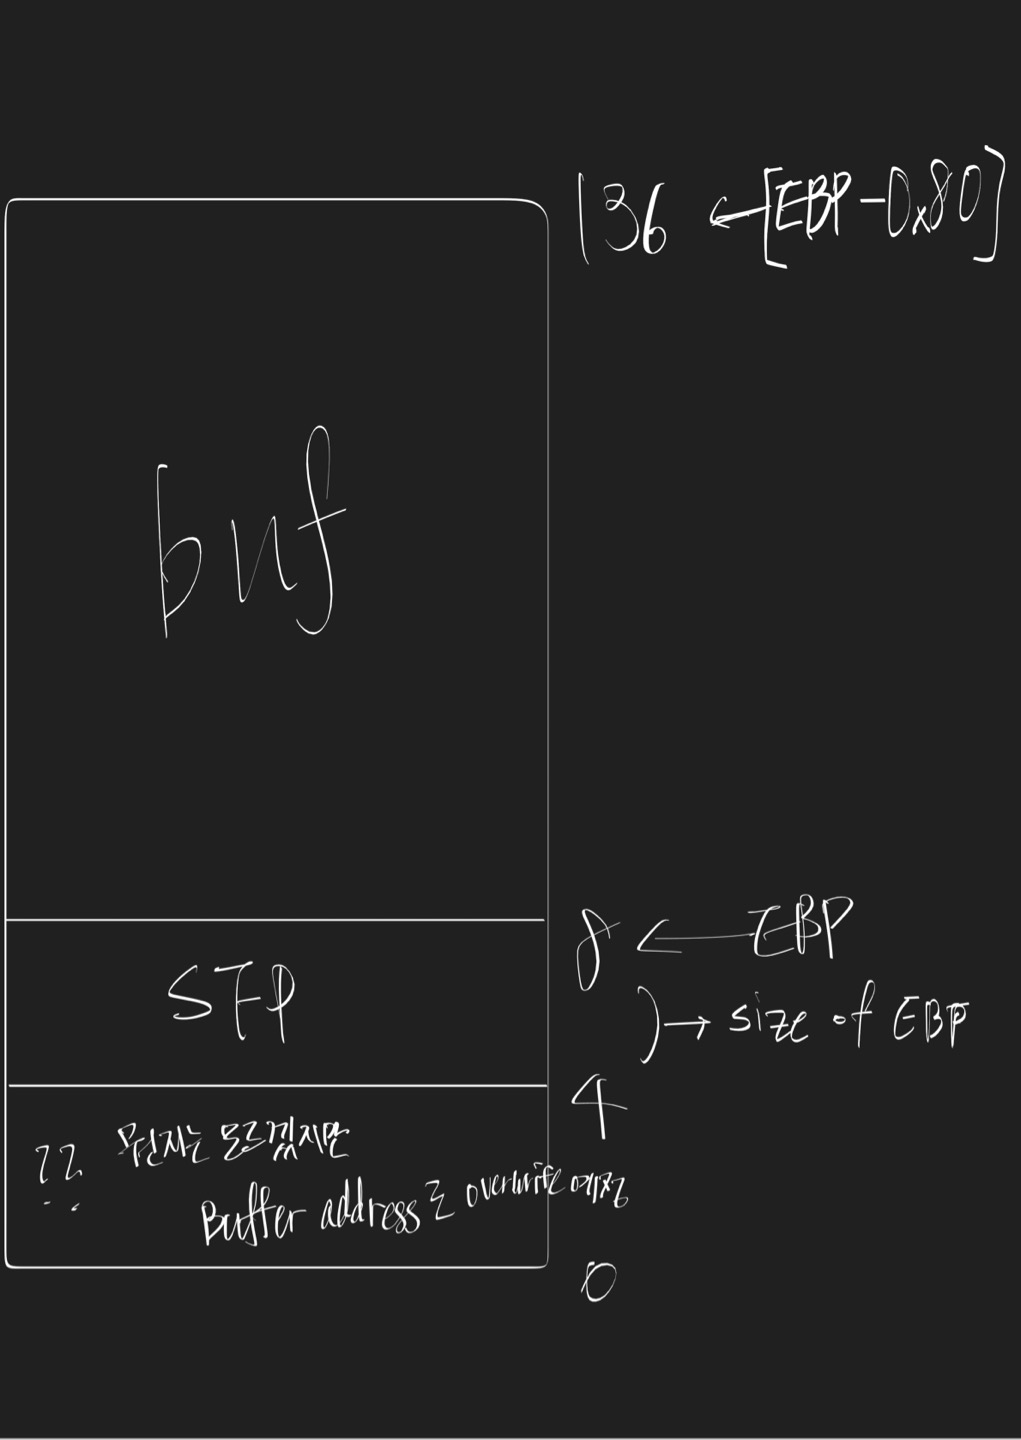 136 ← [EBP-0x80]
buf
8 ← EBP
SFP
) → size of EBP
4
?? 뭔지는 모르겠지만
Buffer address로 overwrite 예정
0